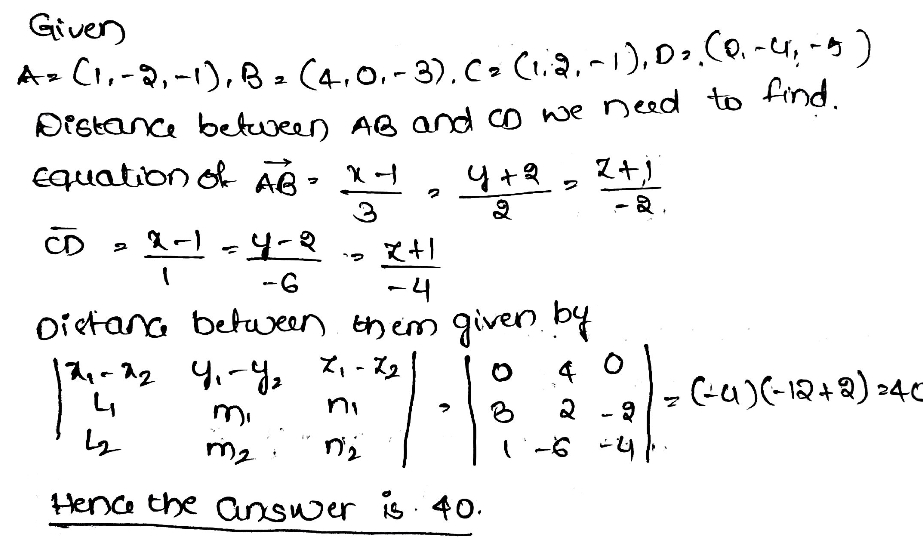 Given
A = (1, -2, -1), B = (4, 0, -3), C = (1, 2, -1), D = (0, -4, -5)
Distance between AB and CD we need to find.
Equation of AB = x-1/3 = y+2/2 = z+1/-2.
CD = x-1/1 = y-2/-6 = z+1/-4
Distance between them given by
| x₁-x₂ y₁-y₂ z₁-z₂ | = | 0 4 0 |
| L₁ m₁ n₁ | | 3 2 -2 | = (-4)(-12+2) = 40
| L₂ m₂ n₂ | | 1 -6 -4 |
Hence the answer is 40.